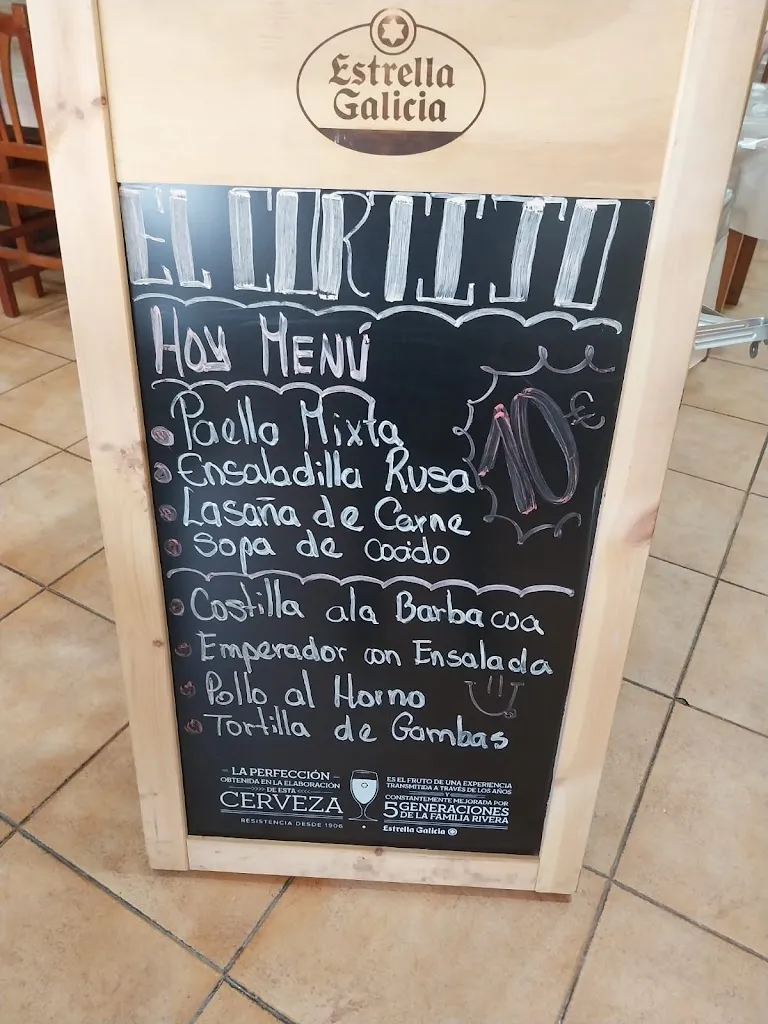 Estrella
Galicia
EL CORTIJO
HOY MENÚ
10€
Paella Mixta
Ensaladilla Rusa
Lasaña de Carne
Sopa de cocido
Costilla ala Barbacoa
Emperador con Ensalada
Pollo al Horno
Tortilla de Gambas
LA PERFECCIÓN
OBTENIDA EN LA ELABORACIÓN
DE ESTA
CERVEZA
RESISTENCIA DESDE 1906
ES EL FRUTO DE UNA EXPERIENCIA
TRANSMITIDA A TRAVÉS DE LOS AÑOS
Y
CONSTANTEMENTE MEJORADA POR
5 GENERACIONES
DE LA FAMILIA RIVERA
Estrella Galicia